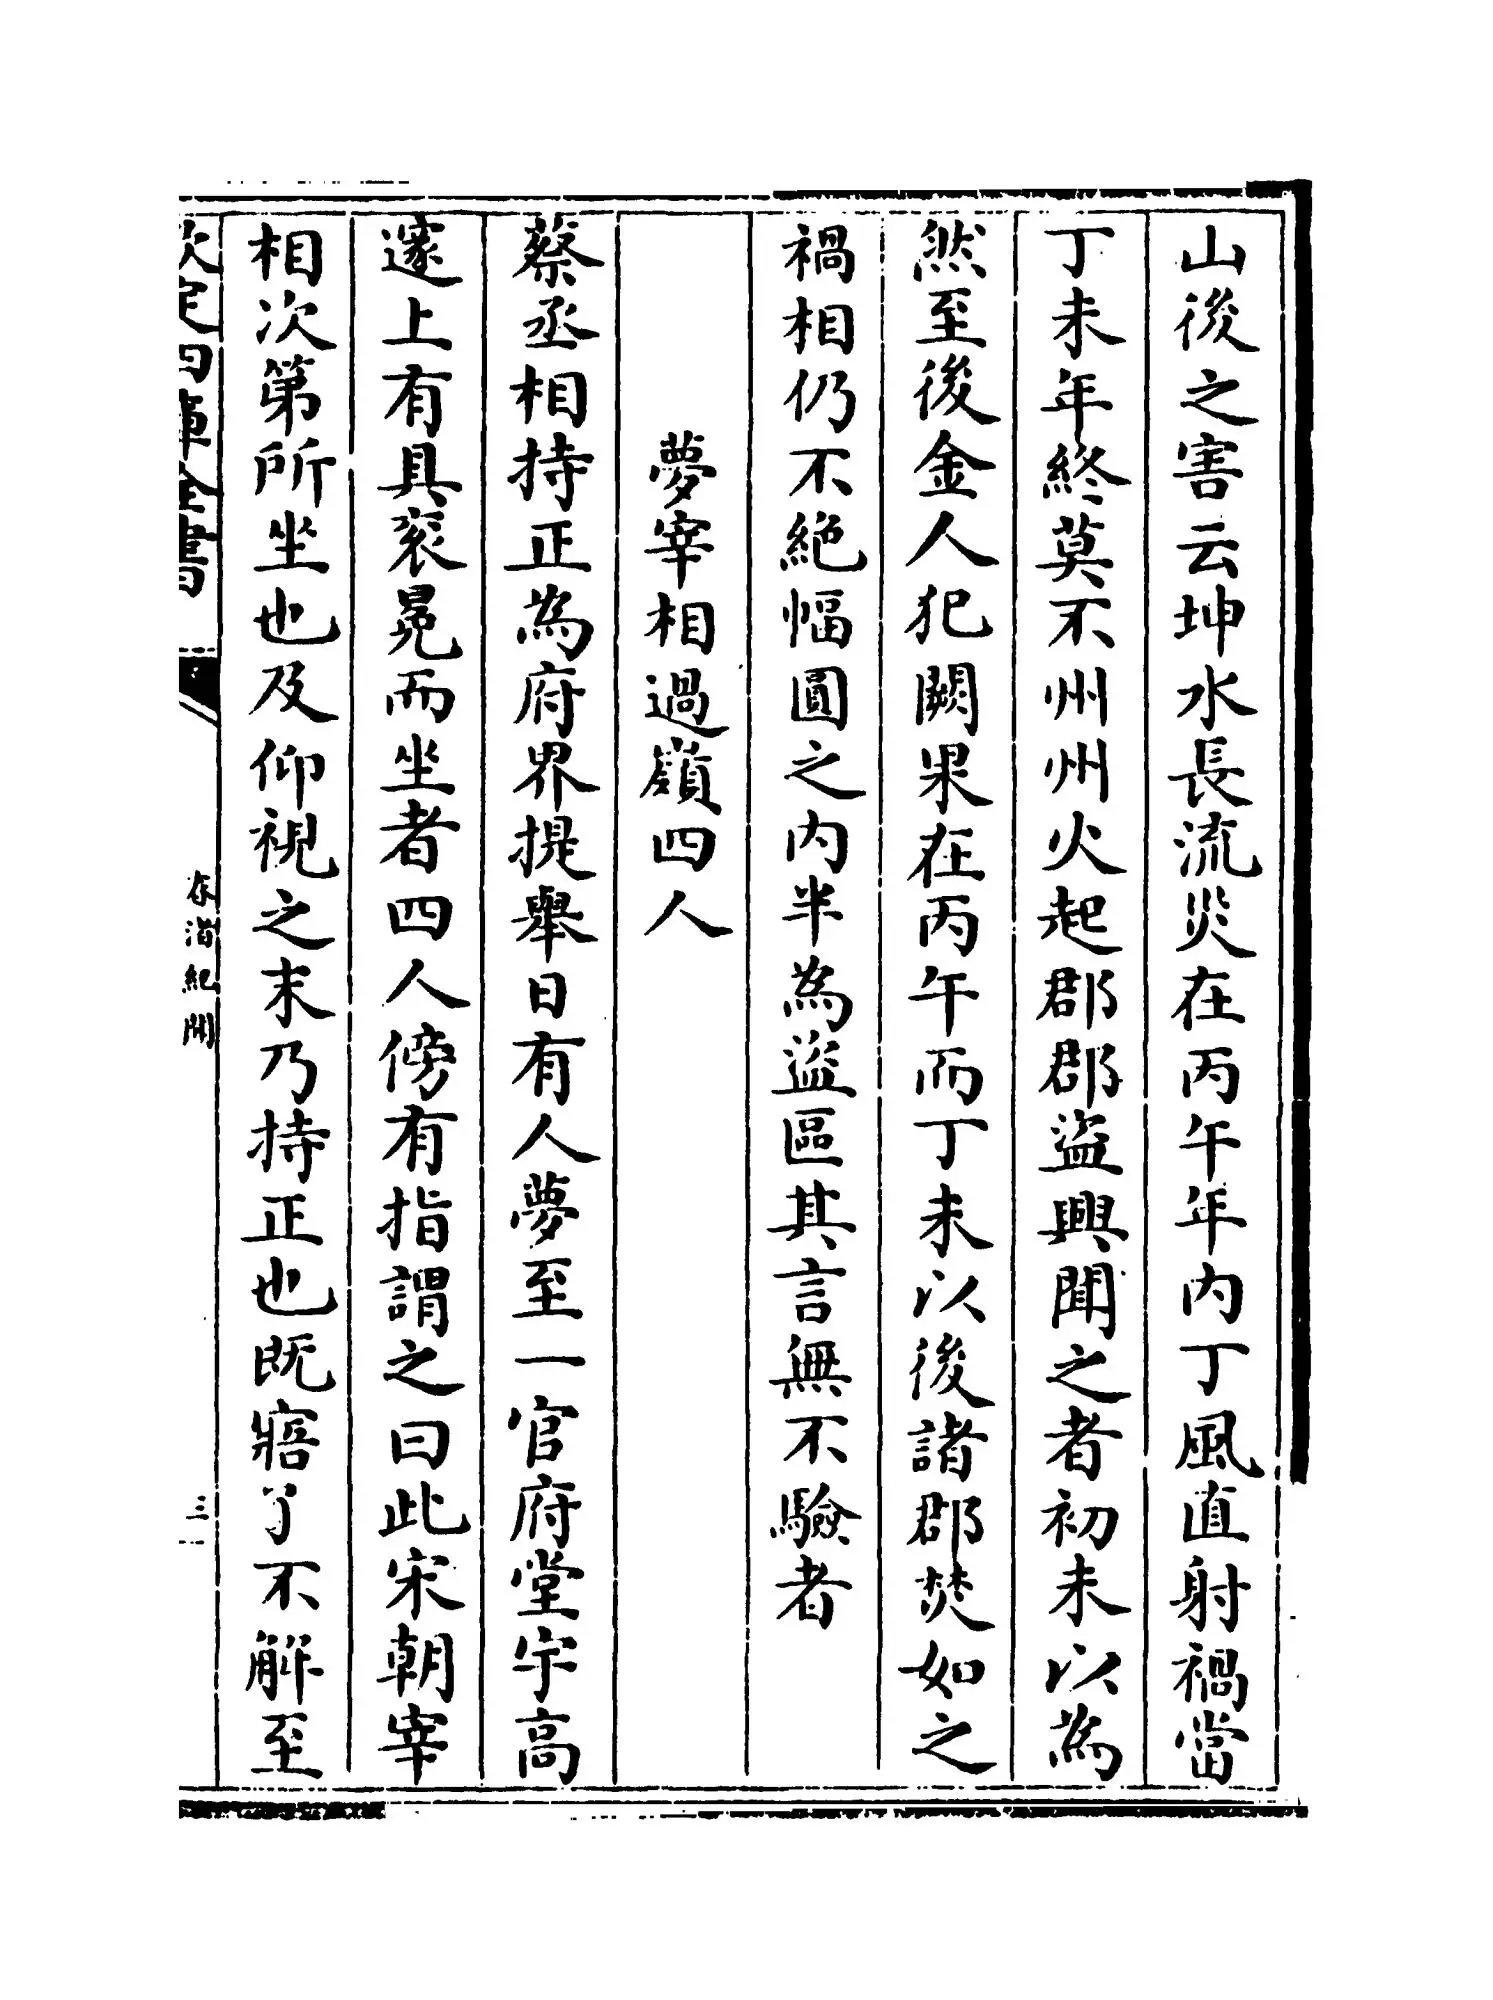 山後之害云坤水長流災在丙午年内丁風直射禍當
丁未年終莫不州州火起郡郡盜興聞之者初未以為
然至後金人犯闕果在丙午而丁未以後諸郡焚如之
禍相仍不絶幅圓之内半為盜區其言無不驗者
夢宰相過嶺四人
蔡丞相持正為府界提舉日有人夢至一官府堂宇高
邃上有具衮冕而坐者四人傍有指謂之曰此宋朝宰
相次第所坐也及仰視之末乃持正也既寤了不解至
欽定四庫全書
春渚紀聞
三